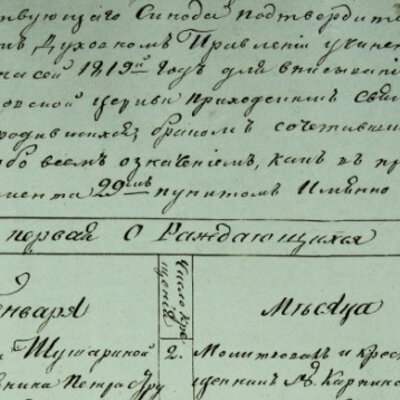 ствующаго Синода подтвердит
Духовномъ Правленіи учинен
на сей 1819й годъ для вписыванія
церкви приходскимъ свящ
родившихся, бракомъ сочетавши
во всемъ означеніемъ, какъ въ пр
мента 29мъ пунктомъ Имянно
первая О Раждающихся
нваря
Число кре
щенія
Мѣсяца
Тушариной
2. Молитвовалъ и крес
ника Петра
Карпино